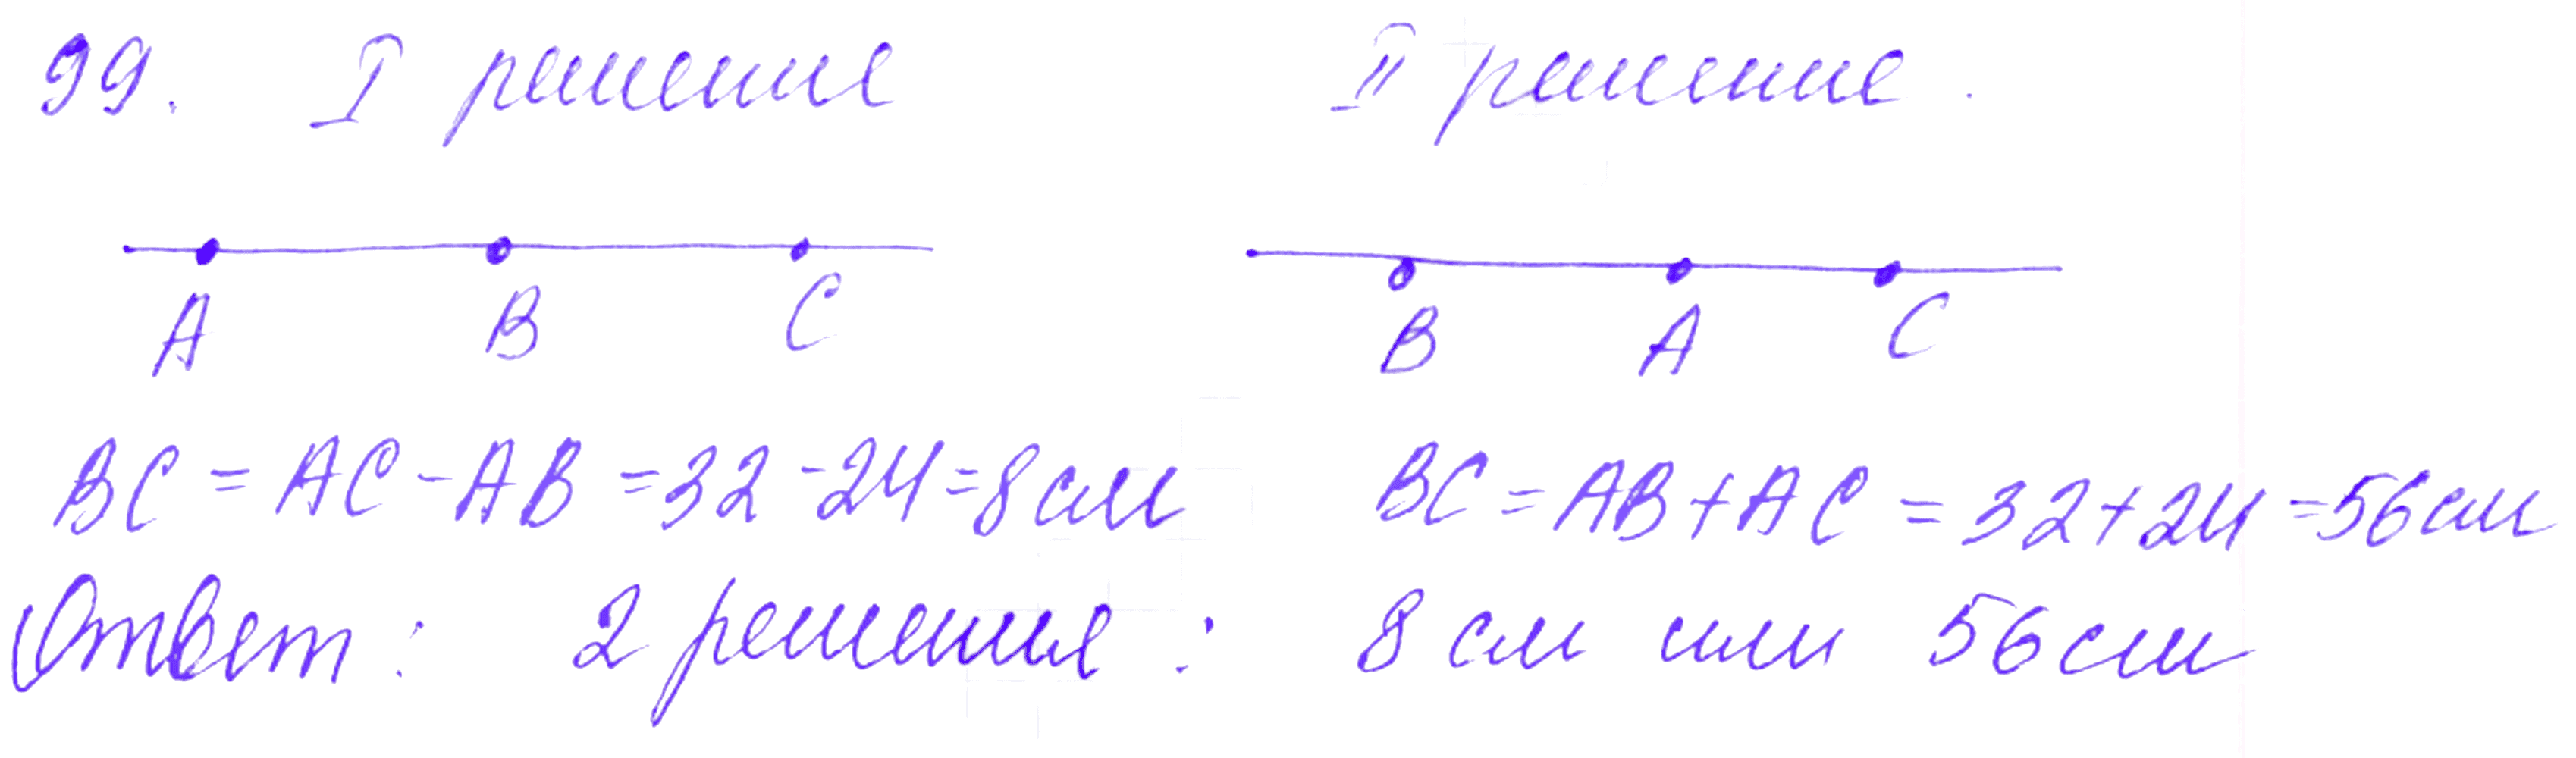 99. I решение II решение.
A B C B A C
BC = AC - AB = 32 - 24 = 8 см BC = AB + AC = 32 + 24 = 56 см
Ответ: 2 решение: 8 см или 56 см